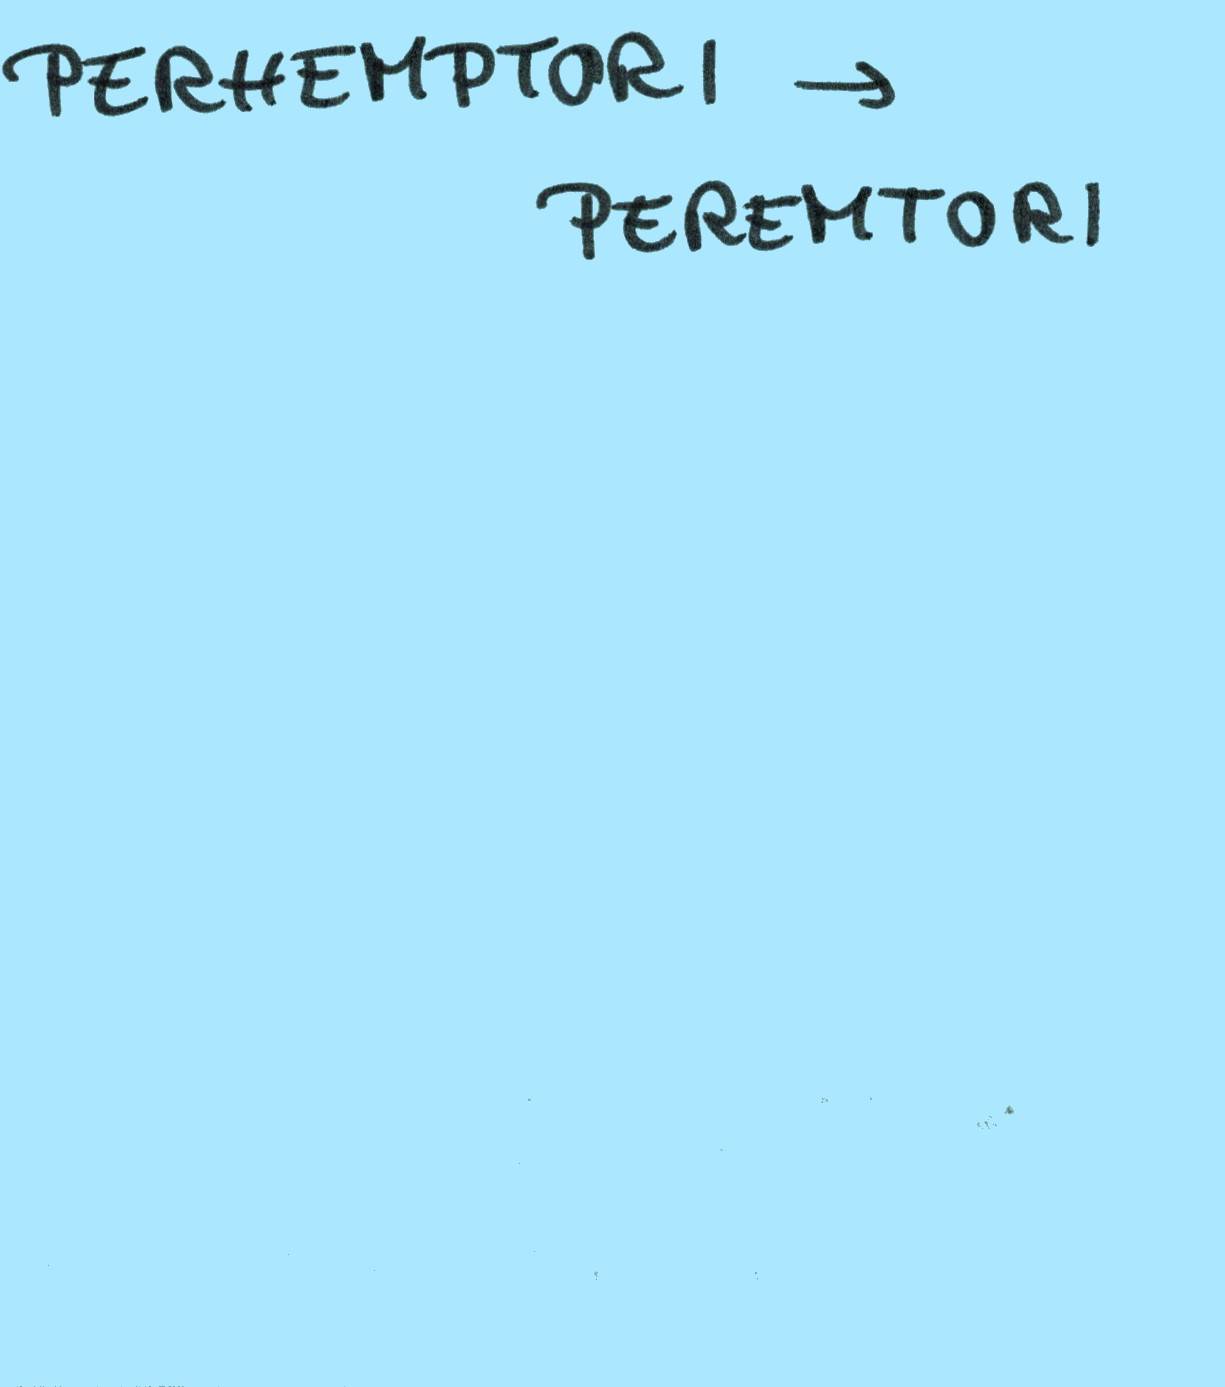 PERHEMPTORI →
PEREMTORI